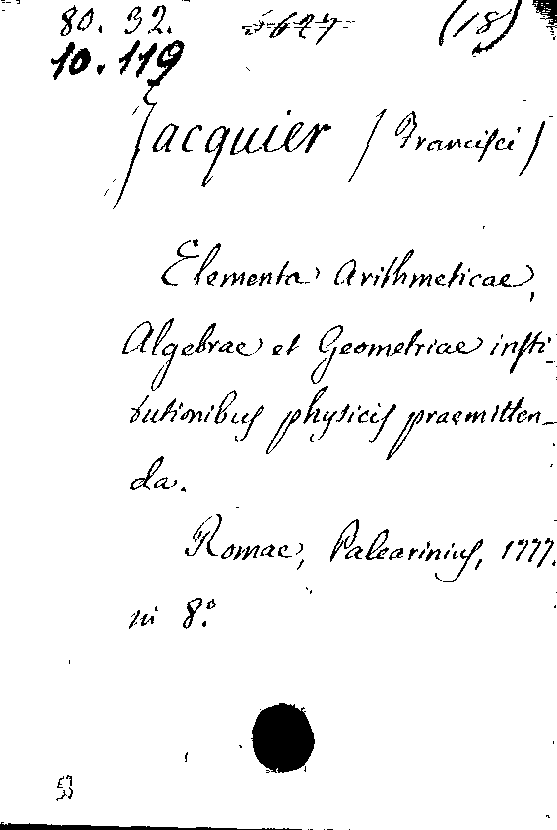 80. 32. 5647 (18)
10.119
Jacquier (Francisci)
Elementa Arithmeticae,
Algebrae et Geometriae insti-
tutionibus physicis praemitten-
da.
Romae, Palearinius, 1777.
in 8º.